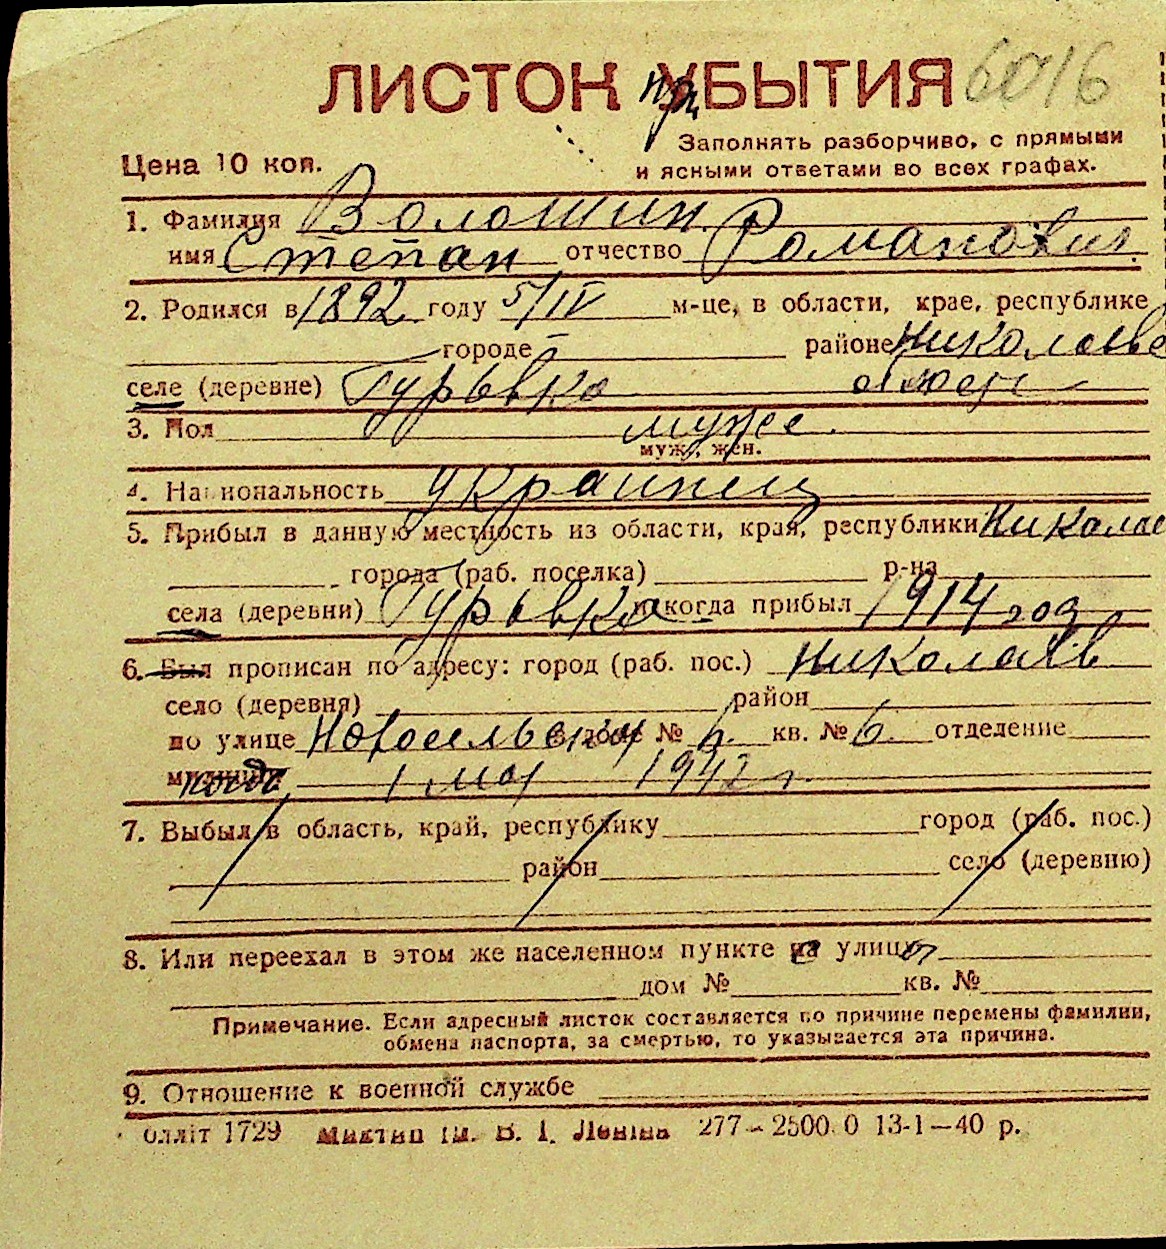 ЛИСТОК УБЫТИЯ 6016
при
Заполнять разборчиво, с прямыми
Цена 10 коп. и ясными ответами во всех графах.
1. Фамилия Волошин
имя Степан отчество Романович
2. Родился в 1892 году 5/IV м-це, в области, крае, республике
городе районе Николаевс
селе (деревне) Гурьвка
3. Пол мужс.
муж., жен.
4. Национальность украинец
5. Прибыл в данную местность из области, края, республики Николае
города (раб. поселка) р-на
села (деревни) Гурьвка и когда прибыл 1914 год
6. Был прописан по адресу: город (раб. пос.) Николаев
село (деревня) район
по улице дом № 6 кв. № 6 отделение
милиции когда 1 мая 1942 г.
7. Выбыл в область, край, республику город (раб. пос.)
район село (деревню)
8. Или переехал в этом же населенном пункте на улицу
дом № кв. №
Примечание. Если адресный листок составляется по причине перемены фамилии,
обмена паспорта, за смертью, то указывается эта причина.
9. Отношение к военной службе
олліт 1729 ім. В. І. Леніна 277–2500.0 13-1–40 р.